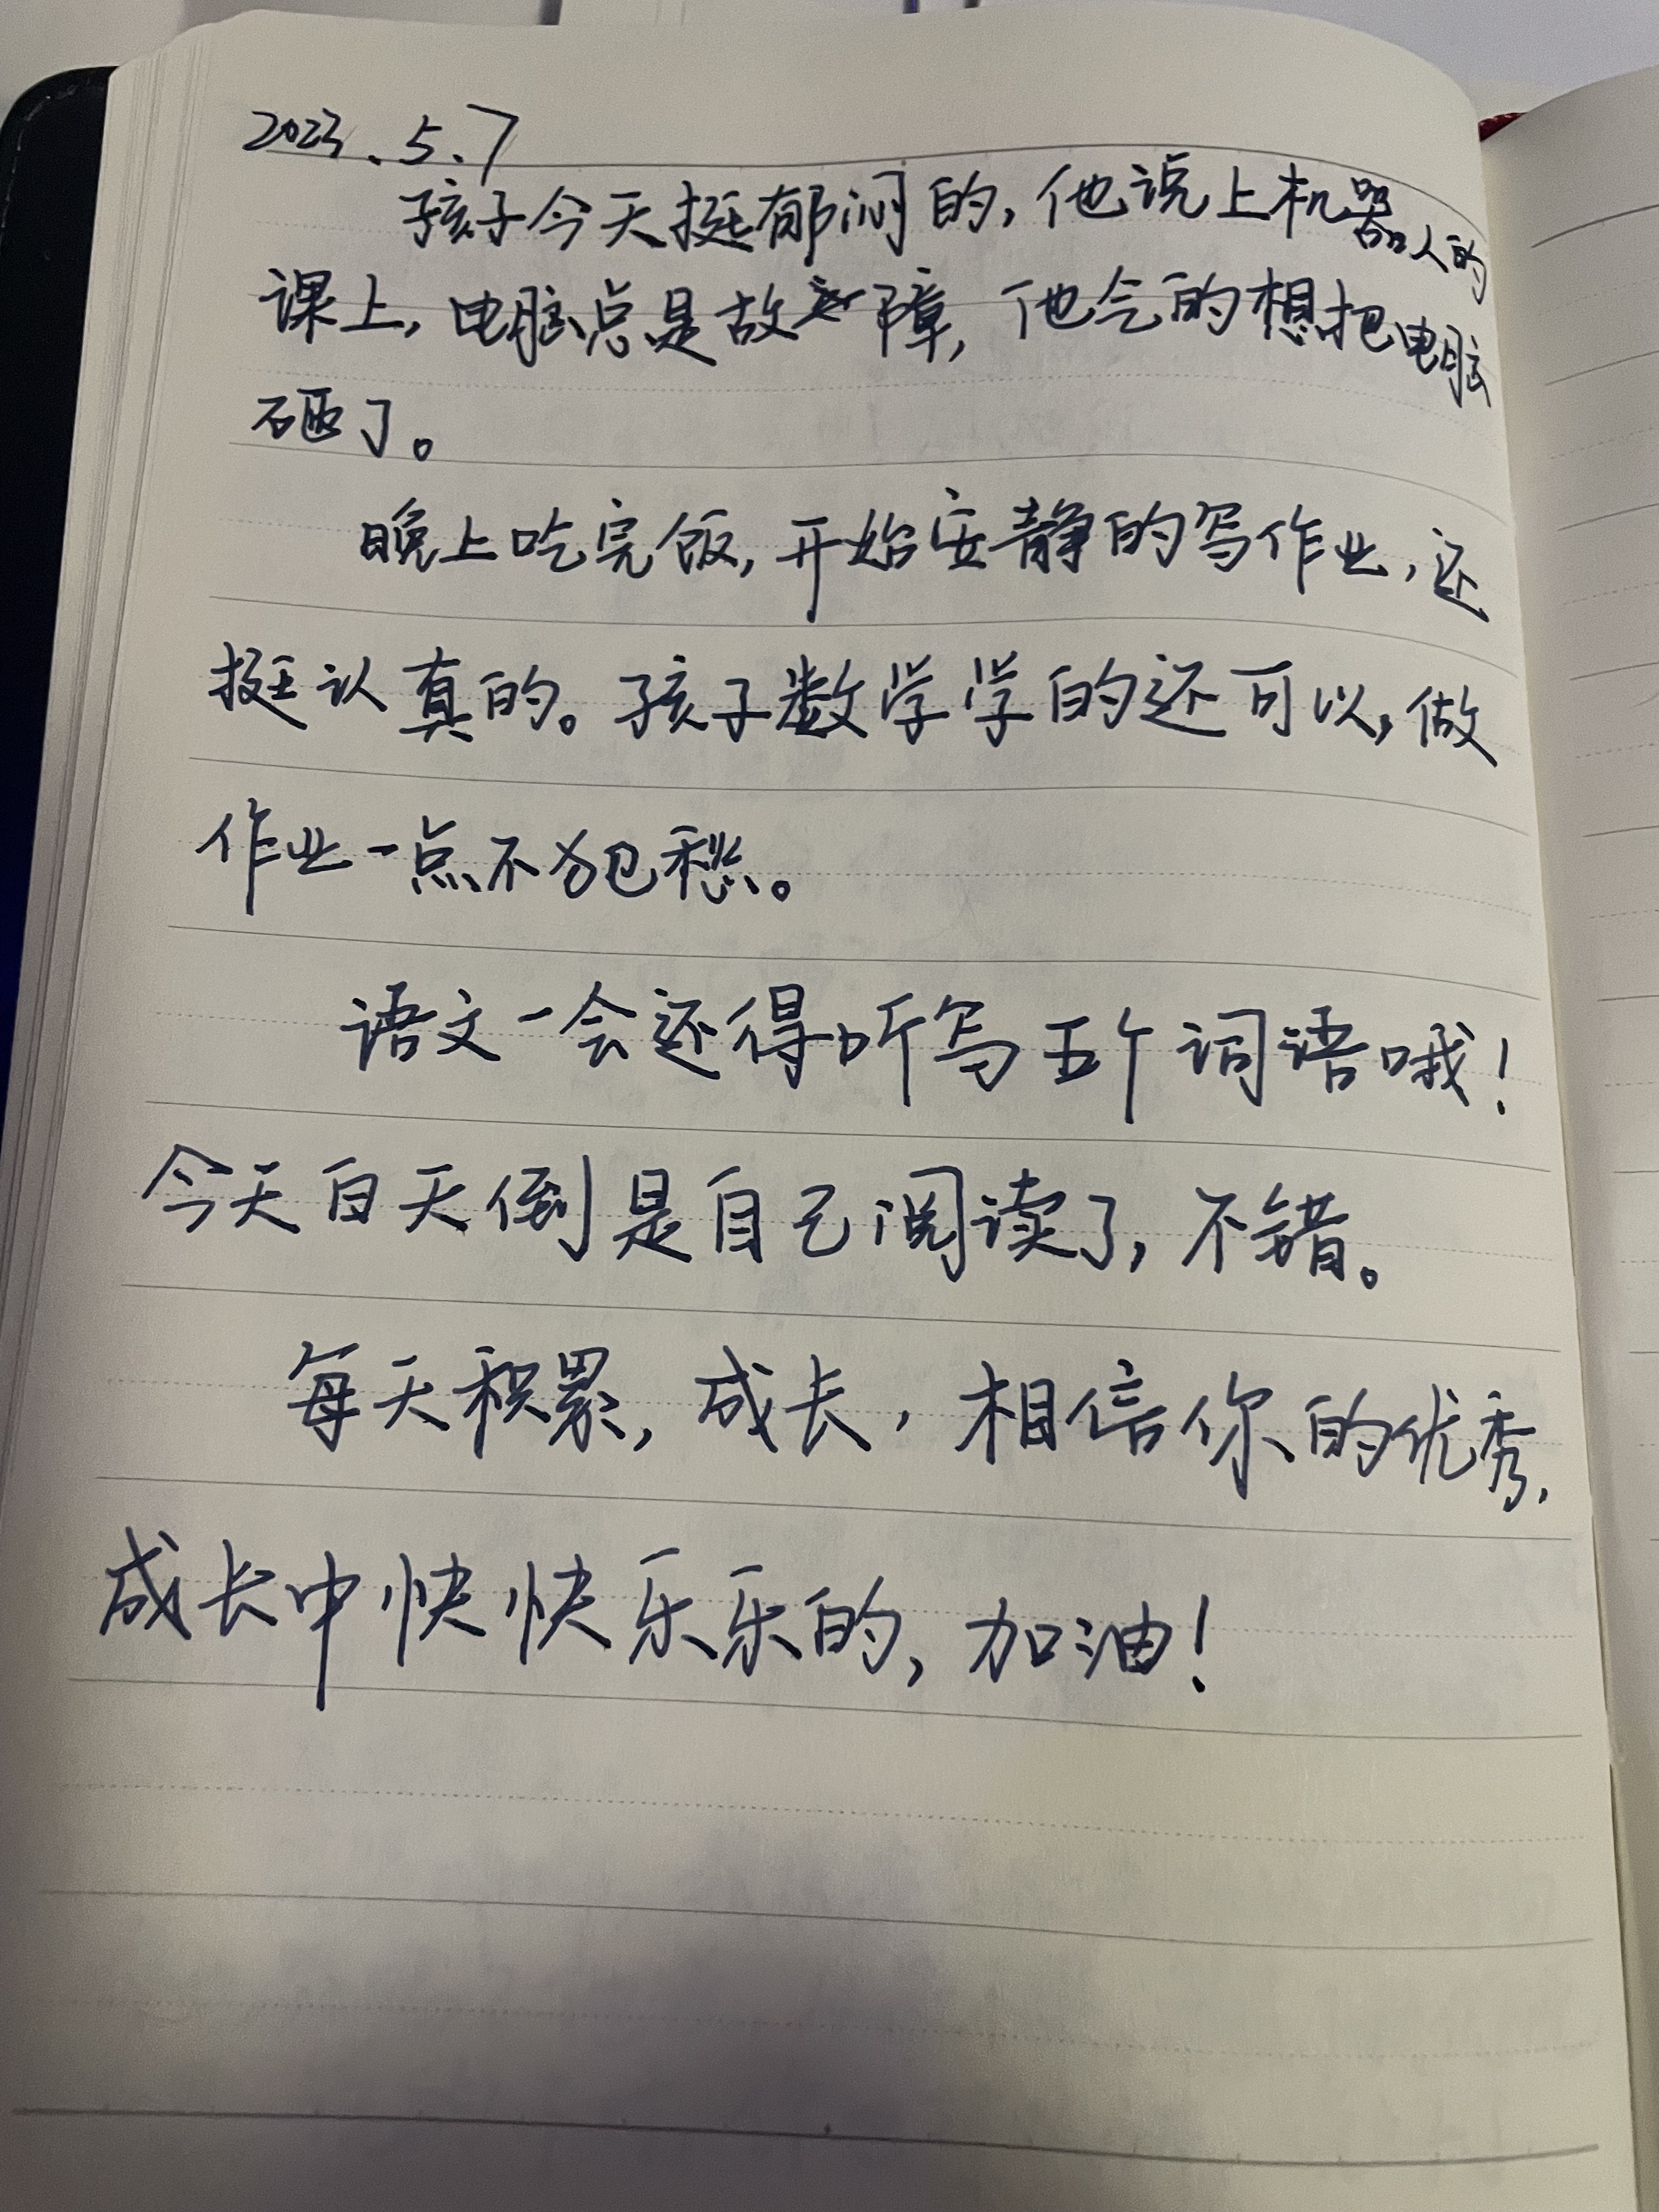 2023.5.7
孩子今天挺郁闷的,他说上机器人的
课上,电脑总是故障,他气的想把电脑
砸了。
晚上吃完饭,开始安静的写作业,还
挺认真的。孩子数学学的还可以,做
作业一点不犯愁。
语文一会还得听写五个词语哦!
今天白天倒是自己阅读了,不错。
每天积累,成长,相信你的优秀,
成长中快快乐乐的,加油!